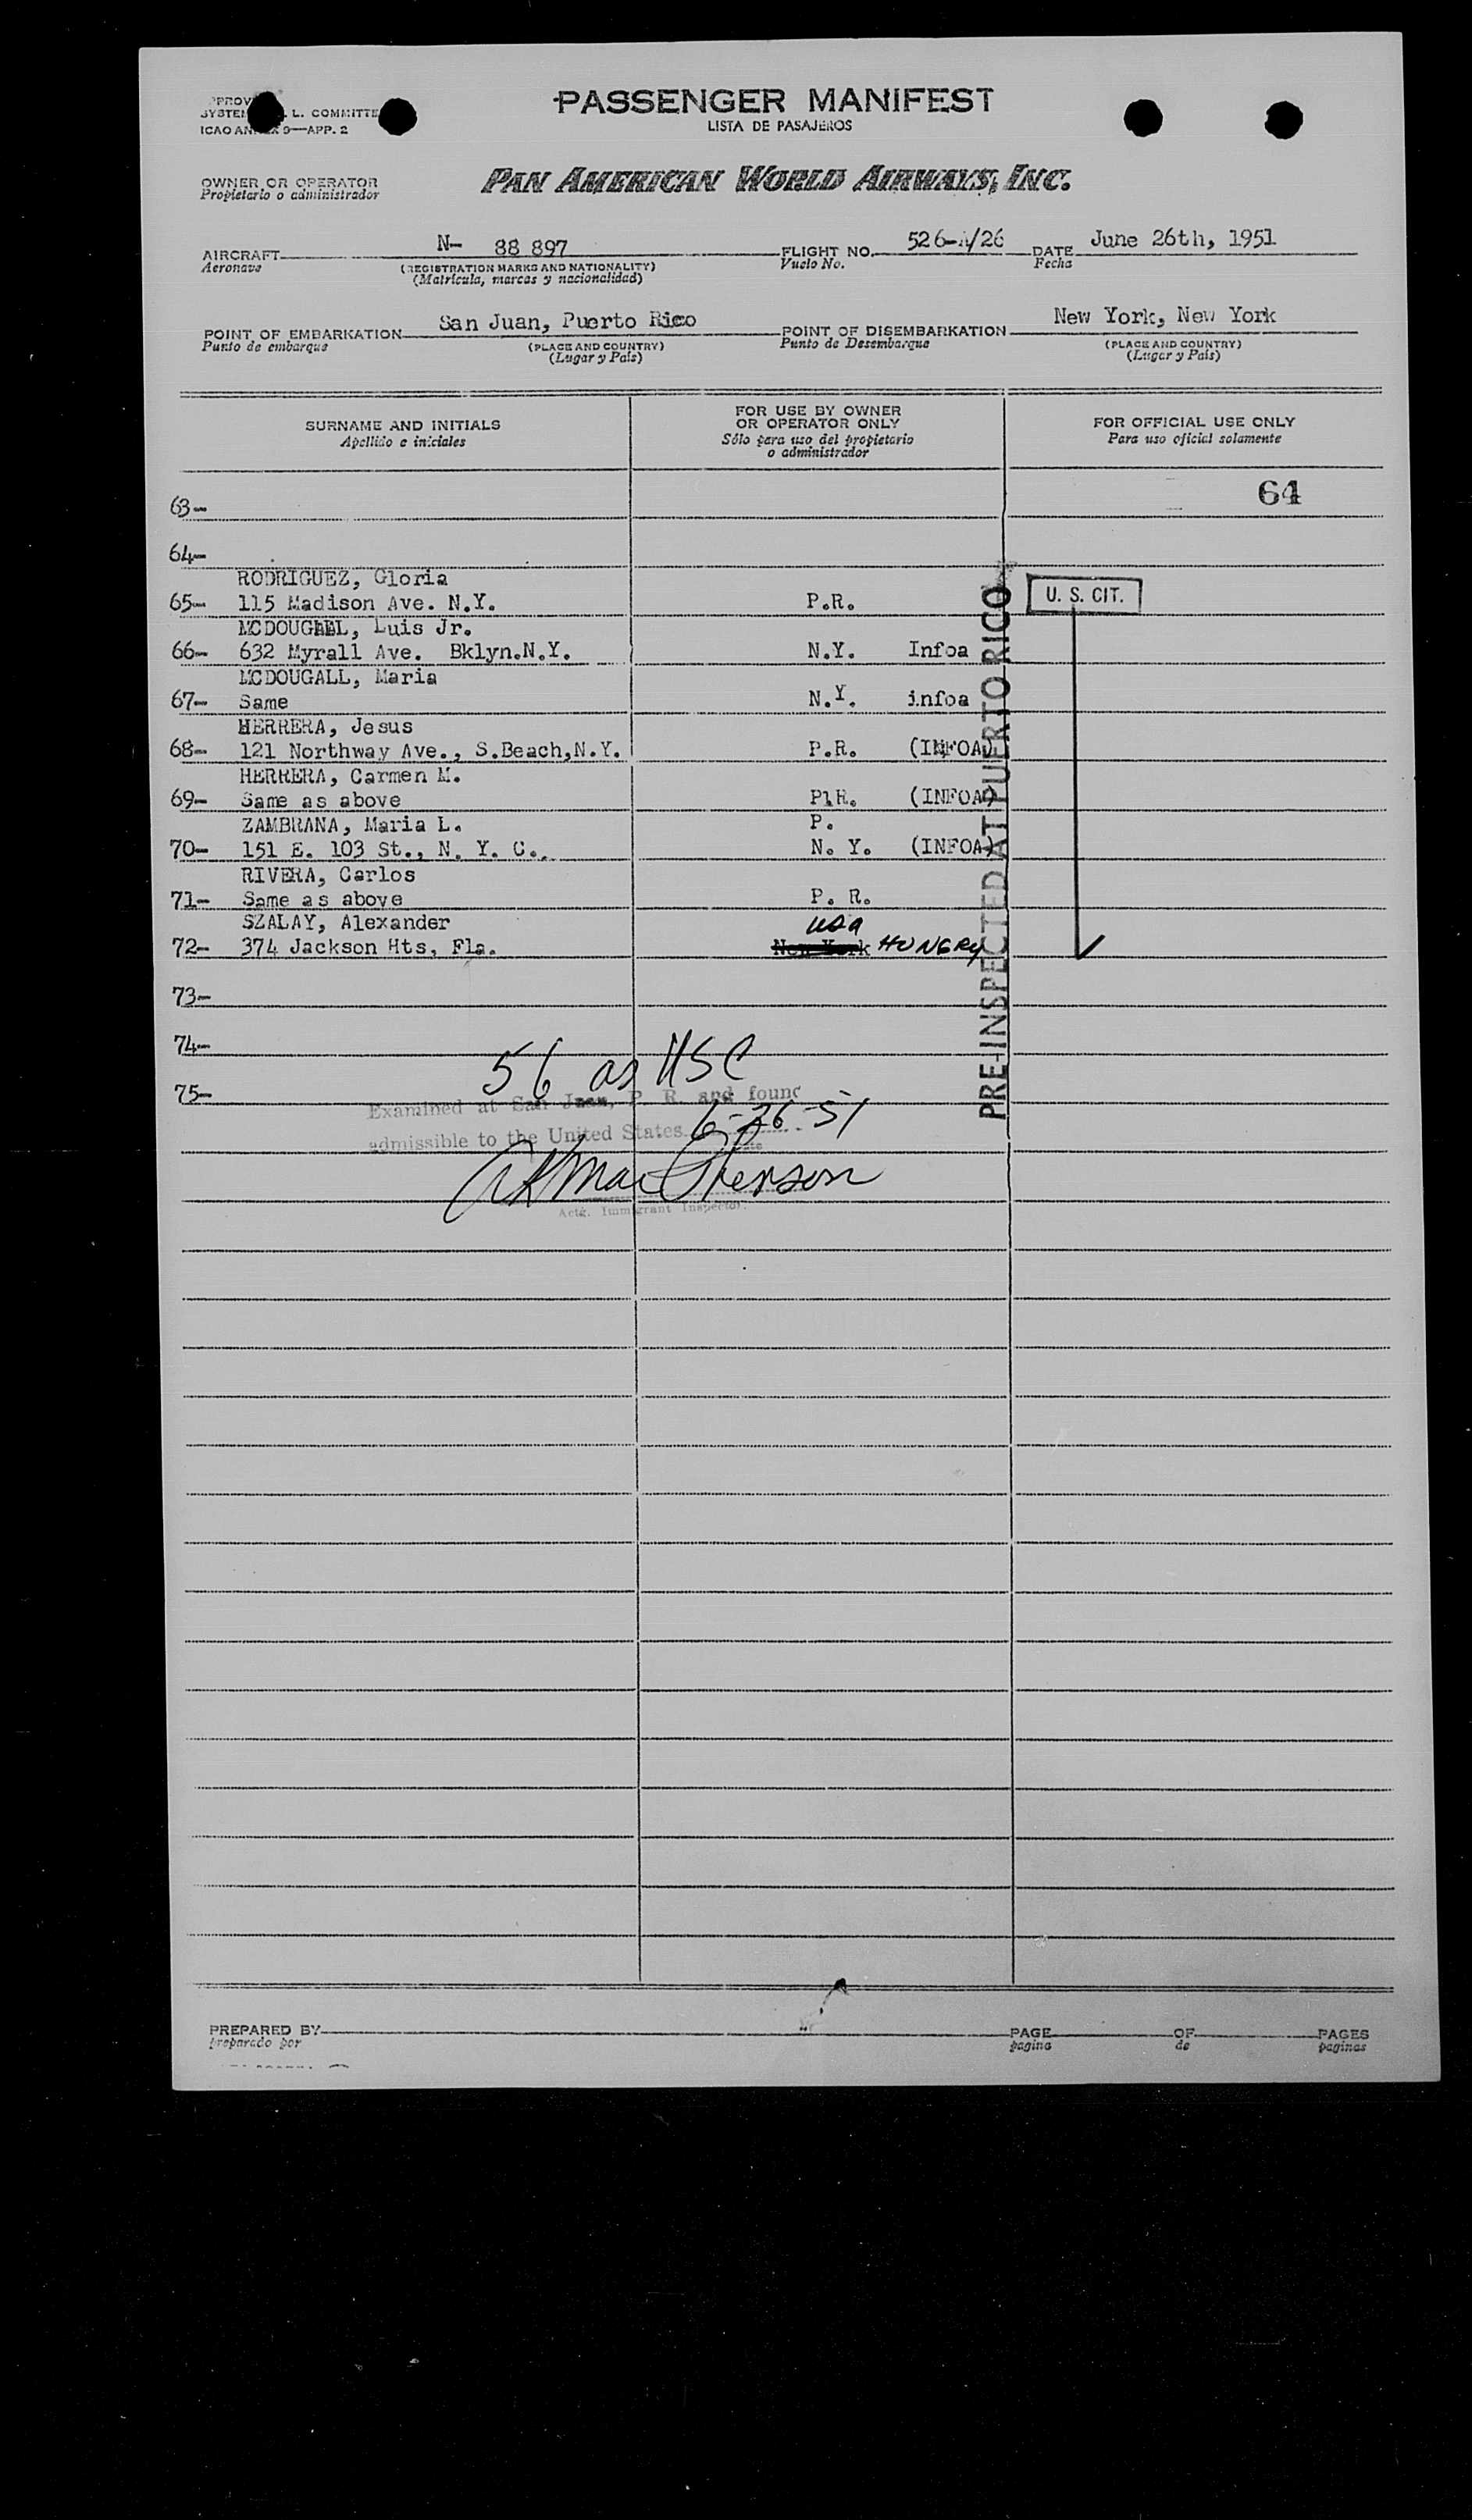 PASSENGER MANIFEST
LISTA DE PASAJEROS
L. COMMITTE
ICAO 9—APP. 2
OWNER OR OPERATOR
Propietario o administrador
PAN AMERICAN WORLD AIRWAYS, INC.
AIRCRAFT N- 88 897 FLIGHT NO. 526-A/26 DATE June 26th, 1951
Aeronave (REGISTRATION MARKS AND NATIONALITY) Vuelo No. Fecha
(Matrícula, marcas y nacionalidad)
POINT OF EMBARKATION San Juan, Puerto Rico POINT OF DISEMBARKATION New York, New York
Punto de embarque (PLACE AND COUNTRY) Punto de Desembarque (PLACE AND COUNTRY)
(Lugar y País) (Lugar y País)
SURNAME AND INITIALS
Apellido e iniciales
FOR USE BY OWNER
OR OPERATOR ONLY
Sólo para uso del propietario
o administrador
FOR OFFICIAL USE ONLY
Para uso oficial solamente
63- 64
64-
RODRIGUEZ, Gloria
65- 115 Madison Ave. N.Y. P.R. U. S. CIT.
MCDOUGALL, Luis Jr.
66- 632 Myrall Ave. Bklyn.N.Y. N.Y. Infoa
MCDOUGALL, Maria
67- Same N.Y. infoa
HERRERA, Jesus
68- 121 Northway Ave., S.Beach,N.Y. P.R. (INFOA)
HERRERA, Carmen M.
69- Same as above P1R. (INFOA)
ZAMBRANA, Maria L. P.
70- 151 E. 103 St., N. Y. C. N. Y. (INFOA)
RIVERA, Carlos
71- Same as above P. R.
SZALAY, Alexander USA
72- 374 Jackson Hts, Fla. New York HUNGRY
PRE-INSPECTED AT PUERTO RICO
73-
74-
56 as USC
75-
Examined at San Juan, P. R. and found
admissible to the United States 6-26-51
Actg. Immigrant Inspector.
PREPARED BY PAGE OF PAGES
preparado por pagina de paginas